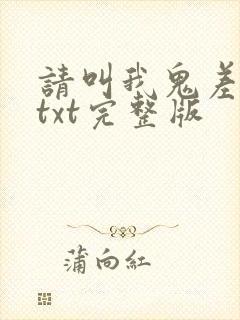 請叫我鬼差
txt完整版
蒲向紅